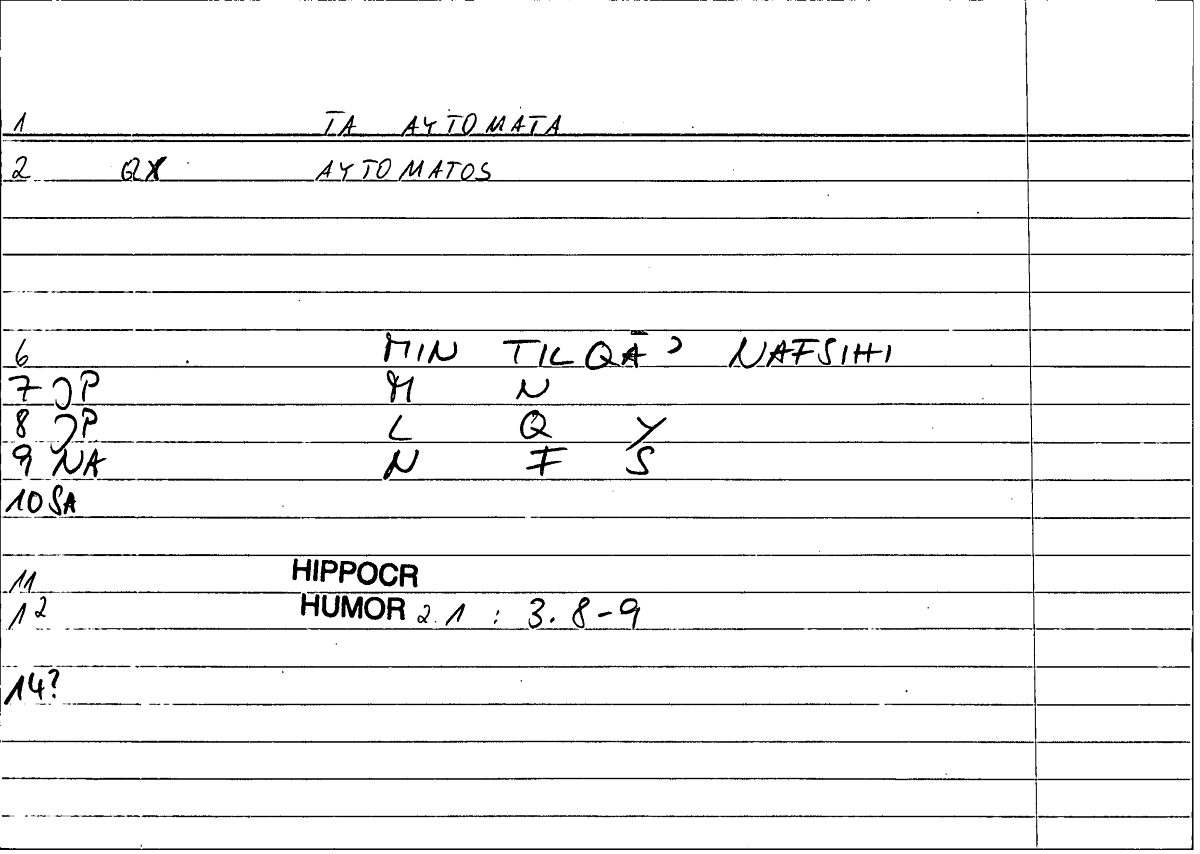 1 TA AYTOMATA
2 QX AYTOMATOS
6 MIN TILQĀʾ NAFSIHI
7 JP M N
8 JP L Q Y
9 NA N F S
10 SA
11 HIPPOCR
12 HUMOR 2.1 : 3.8-9
14?